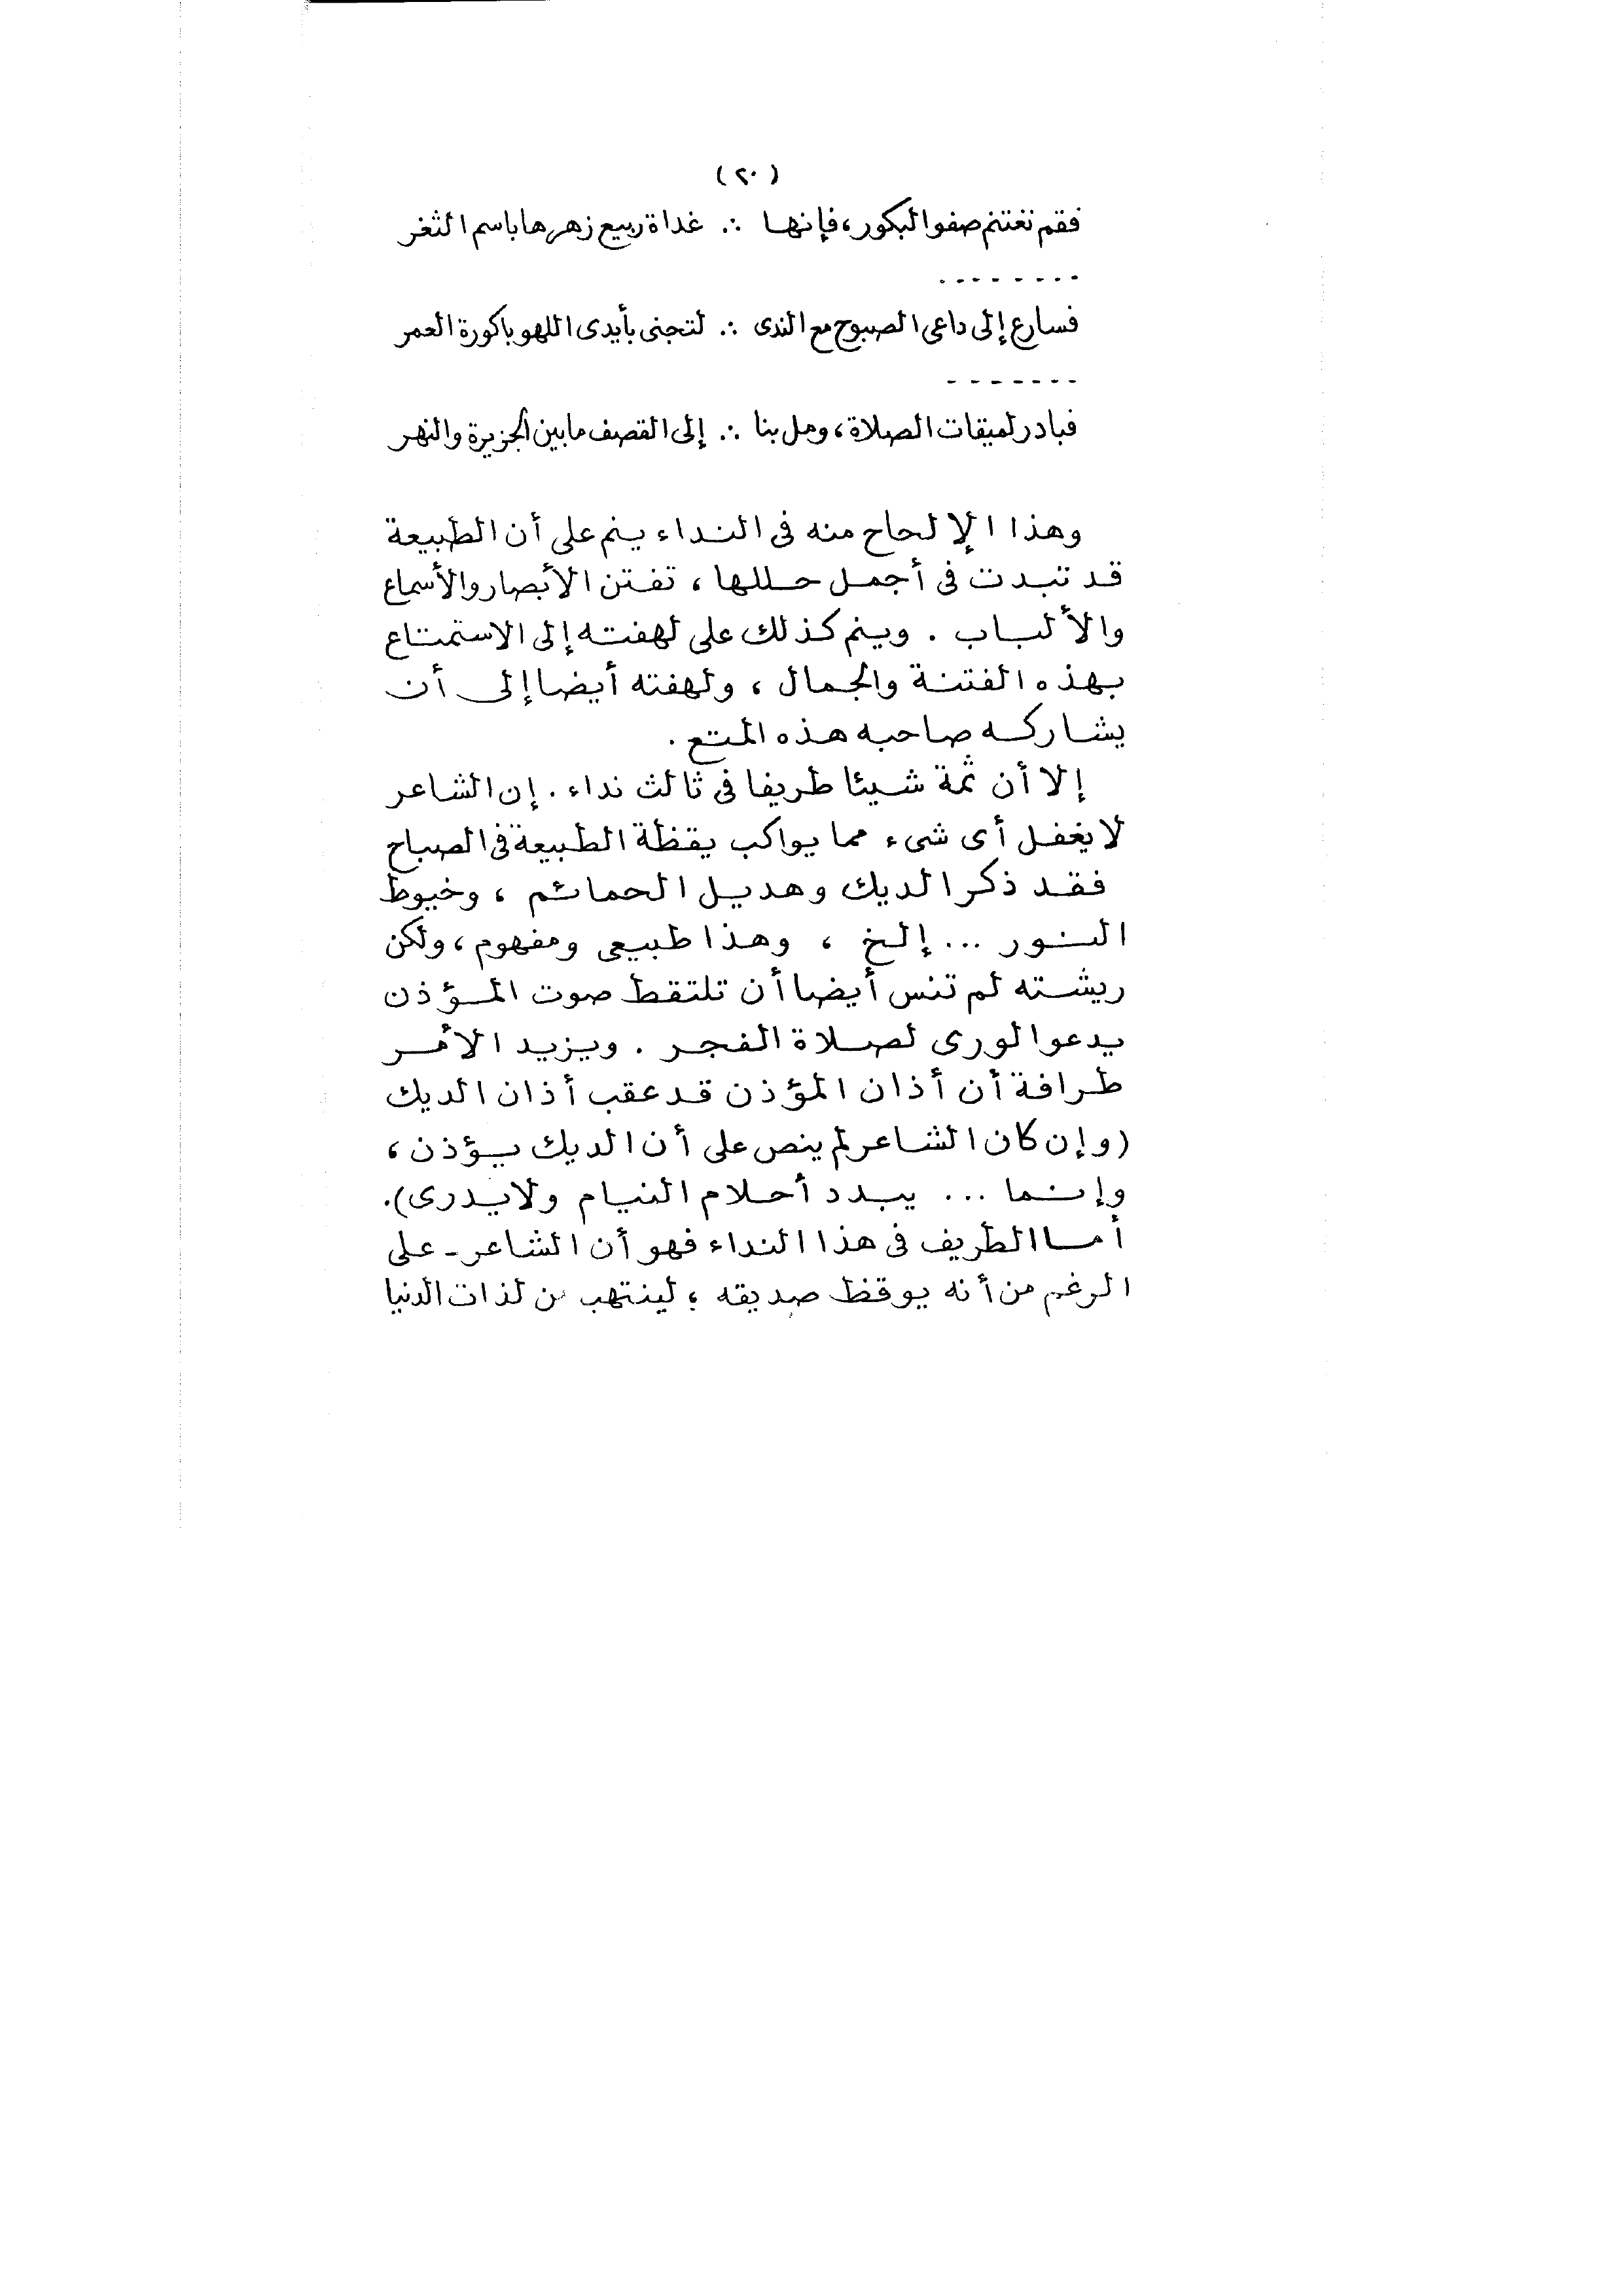 (٢٠)
فقم نغتنم صفو البكور، فإنها ∴ غداة ربيع زهرها باسم الثغر
--------
فسارع إلى داعى الصبوح مع الندى ∴ لتجنى بأيدى اللهو باكورة العمر
-------
فبادر لميقات الصلاة، ومل بنا ∴ إلى القصف ما بين الجزيرة والنهر
وهذا الإلحاح منه فى النداء ينم على أن الطبيعة
قد تبدت فى أجمل حللها، تفتن الأبصار والأسماع
والألباب. وينم كذلك على لهفته إلى الاستمتاع
بهذه الفتنة والجمال، ولهفته أيضا إلى أن
يشاركه صاحبه هذه المتع.
إلا أن ثمة شيئا طريفا فى ثالث نداء. إن الشاعر
لا يغفل أى شىء مما يواكب يقظة الطبيعة فى الصباح
فقد ذكر الديك وهديل الحمائم، وخيوط
النور ... إلخ، وهذا طبيعى ومفهوم، ولكن
ريشته لم تنس أيضا أن تلتقط صوت المؤذن
يدعو الورى لصلاة الفجر. ويزيد الأمر
طرافة أن أذان المؤذن قد عقب أذان الديك
(وإن كان الشاعر لم ينص على أن الديك يؤذن،
وإنما ... يبدد أحلام النيام ولا يدرى).
أما الطريف فى هذا النداء فهو أن الشاعر - على
الرغم من أنه يوقظ صديقه؛ لينتهب من لذات الدنيا